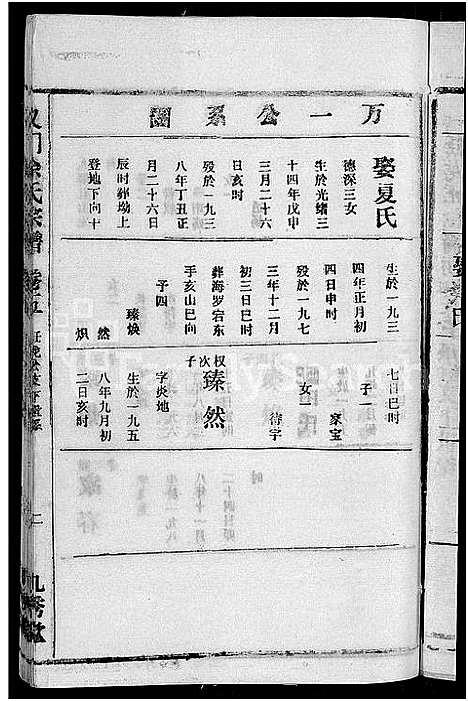 万一公系图
娶夏氏
德深三女
生於光绪三
十四年戊申
三月二十六
日亥时
殁於一九三
八年丁丑正
月二十六日
辰时葬坳上
登地下向十
生於一九三
四年正月初
四日申时
殁於一九七
三年十二月
初三日巳时
葬海罗宕东
手亥山巳向
子四
臻焕
然
炽
七日巳时
子一
家宝
女二
待字
权次子
臻然
字炎地
生於一九五
八年九月初
二日亥时
徐氏宗谱